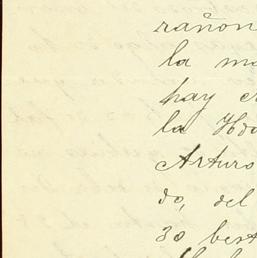 rañon
la
hay
la Hda
Arturo
do, del
30 best